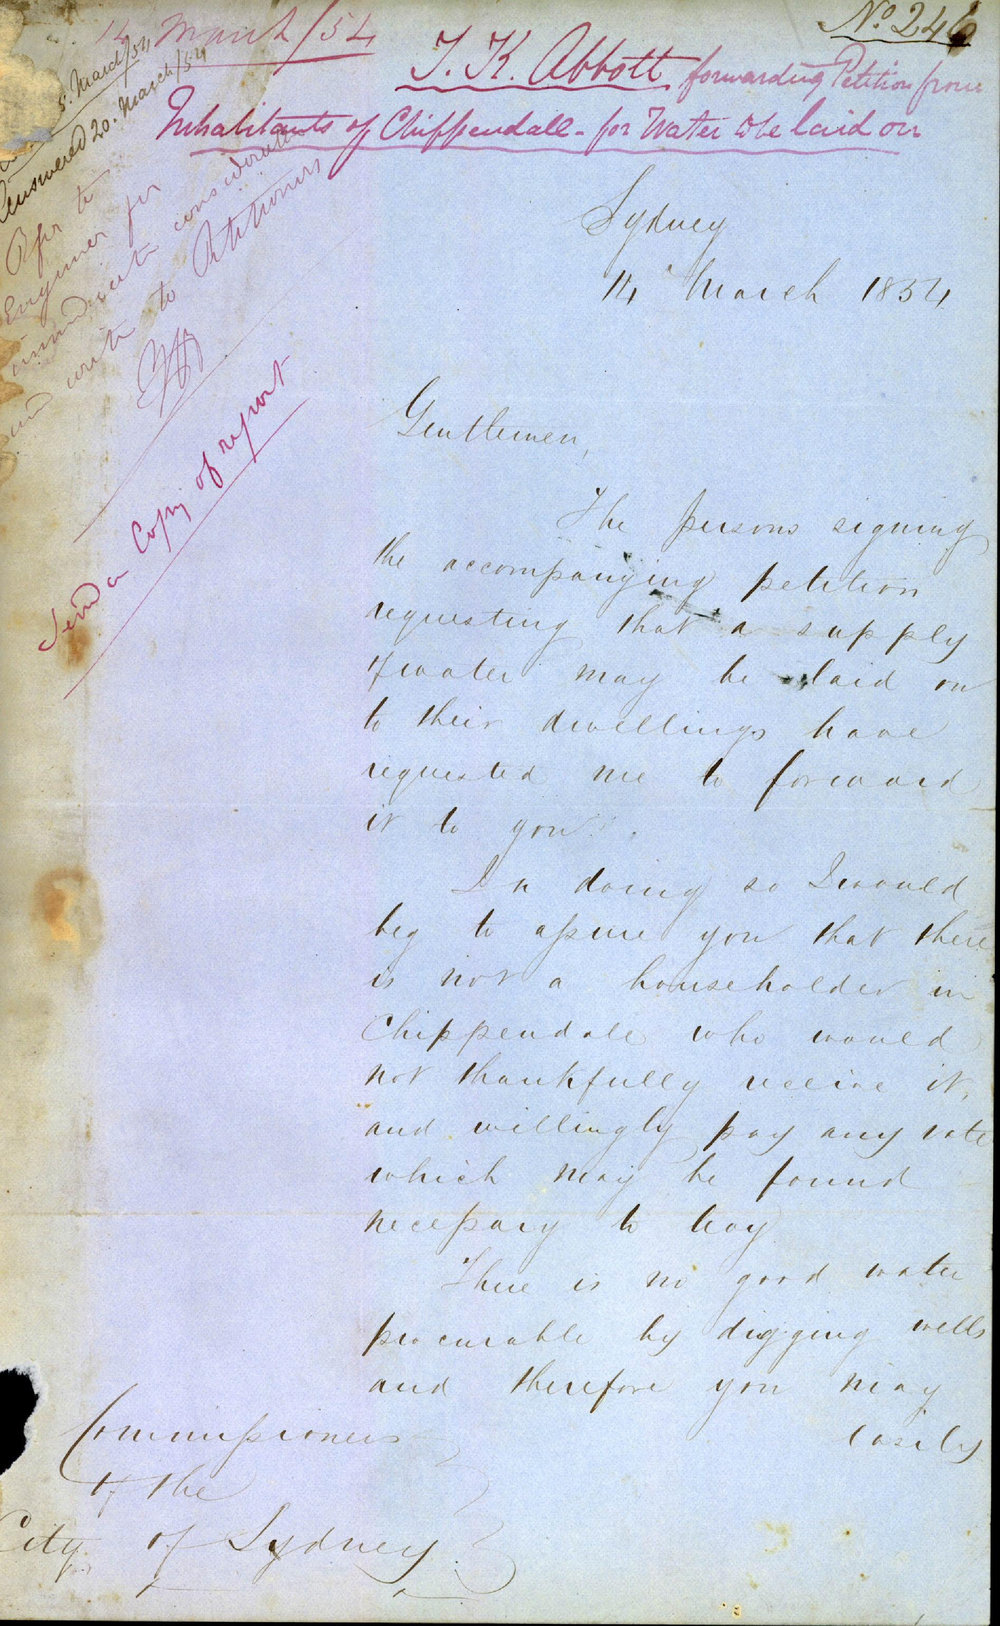 14 March/54
No. 246
T. K. Abbott forwarding Petition from
Inhabitants of Chippendall - for Water to be laid on
5. March/54
Answered 20. March/54
Refer to
Engineer for
immediate consideration
and write to Petitioners
Send a Copy of report
Sydney
14 March 1854
Gentlemen,
The persons signing
the accompanying petition
requesting that a supply
of water may be laid on
to their dwellings have
requested me to forward
it to you.
In doing so I would
beg to assure you that there
is not a householder in
Chippendale who would
not thankfully receive it,
and willingly pay any rate
which may be found
necessary to levy
There is no good water
procurable by digging wells
and therefore you may
easily
Commissioners
of the
City of Sydney